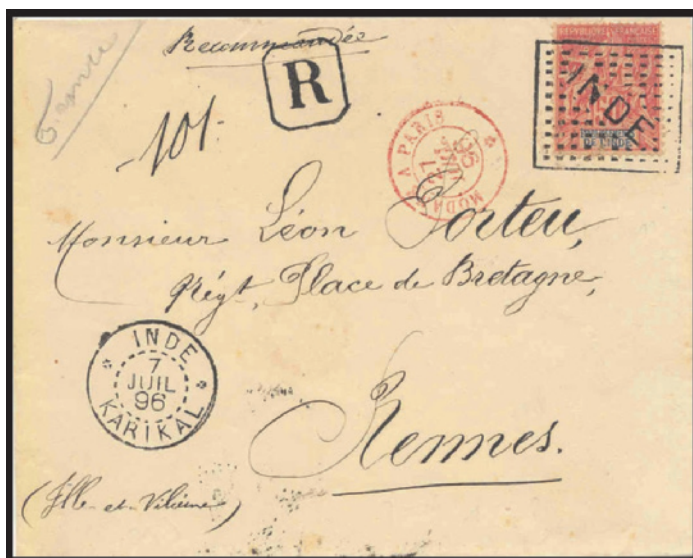 Recommandée
R
101
RÉPUBLIQUE FRANÇAISE
INDE
MODANE A PARIS
JUIL
96
Monsieur Léon Porteu,
Négt, Place de Bretagne,
INDE
7
JUIL
96
KARIKAL
Rennes.
(Ille-et-Vilaine)